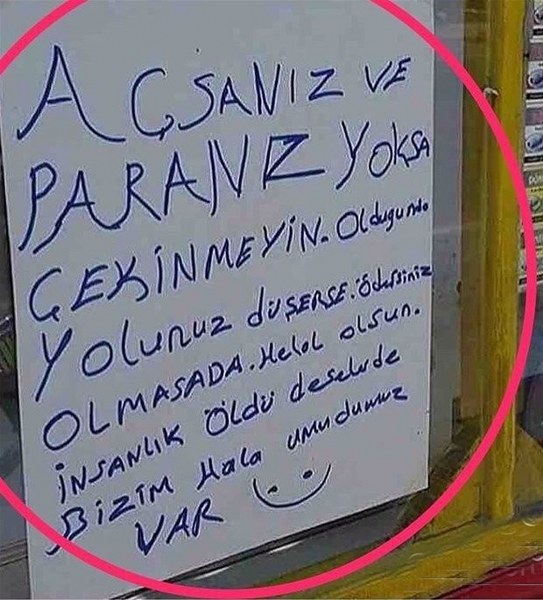 AÇSANIZ VE
PARANIZ YOKSA
ÇEKİNMEYİN. Olduğunda
Yolunuz DÜŞERSE. Ödersiniz
OLMASADA. Helal olsun.
İNSANLIK ÖLDÜ deselerde
BİZİM Hala umudumuz
VAR